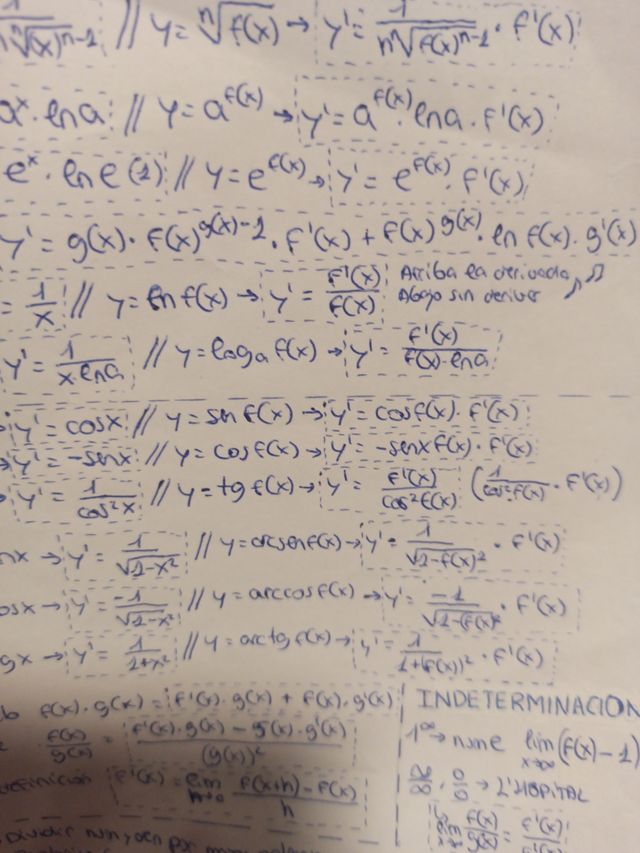 1/(n ⁿ√(x)ⁿ⁻¹) // y = ⁿ√f(x) → y' = 1/(n ⁿ√f(x)ⁿ⁻¹) · f'(x)
aˣ · ln a // y = a^f(x) → y' = a^f(x) · ln a · f'(x)
eˣ · ln e (1) // y = e^f(x) → y' = e^f(x) · f'(x)
y' = g(x) · f(x)^g(x)-1 · f'(x) + f(x)^g(x) · ln f(x) · g'(x)
= 1/x // y = ln f(x) → y' = f'(x)/f(x) Arriba la derivada ♪♫
Abajo sin derivar ♪
y' = 1/(x·ln a) // y = logₐ f(x) → y' = f'(x)/(f(x)·ln a)
y' = cosx // y = senf(x) → y' = cosf(x) · f'(x)
→ y' = -senx // y = cosf(x) → y' = -senxf(x) · f'(x)
→ y' = 1/cos²x // y = tgf(x) → y' = f'(x)/cos²f(x) (1/cos²f(x) · f'(x))
nx → y' = 1/√1-x² // y = arcsenf(x) → y' = 1/√1-f(x)² · f'(x)
osx → y' = -1/√1-x² // y = arccosf(x) → y' = -1/√1-(f(x))² · f'(x)
gx → y' = 1/1+x² // y = arctgf(x) → y' = 1/1+(f(x))² · f'(x)
f(x) · g(x) = f'(x) · g(x) + f(x) · g'(x)
f(x)/g(x) = (f'(x) · g(x) - f(x) · g'(x))/(g(x))²
definición f'(x) = lim h→0 (f(x+h) - f(x))/h
Dividir num y den por
INDETERMINACION
1^∞ → nºe lim x→∞ (f(x) - 1)
∞/∞ , 0/0 → L'HOPITAL
lim f(x)/g(x) = f'(x)